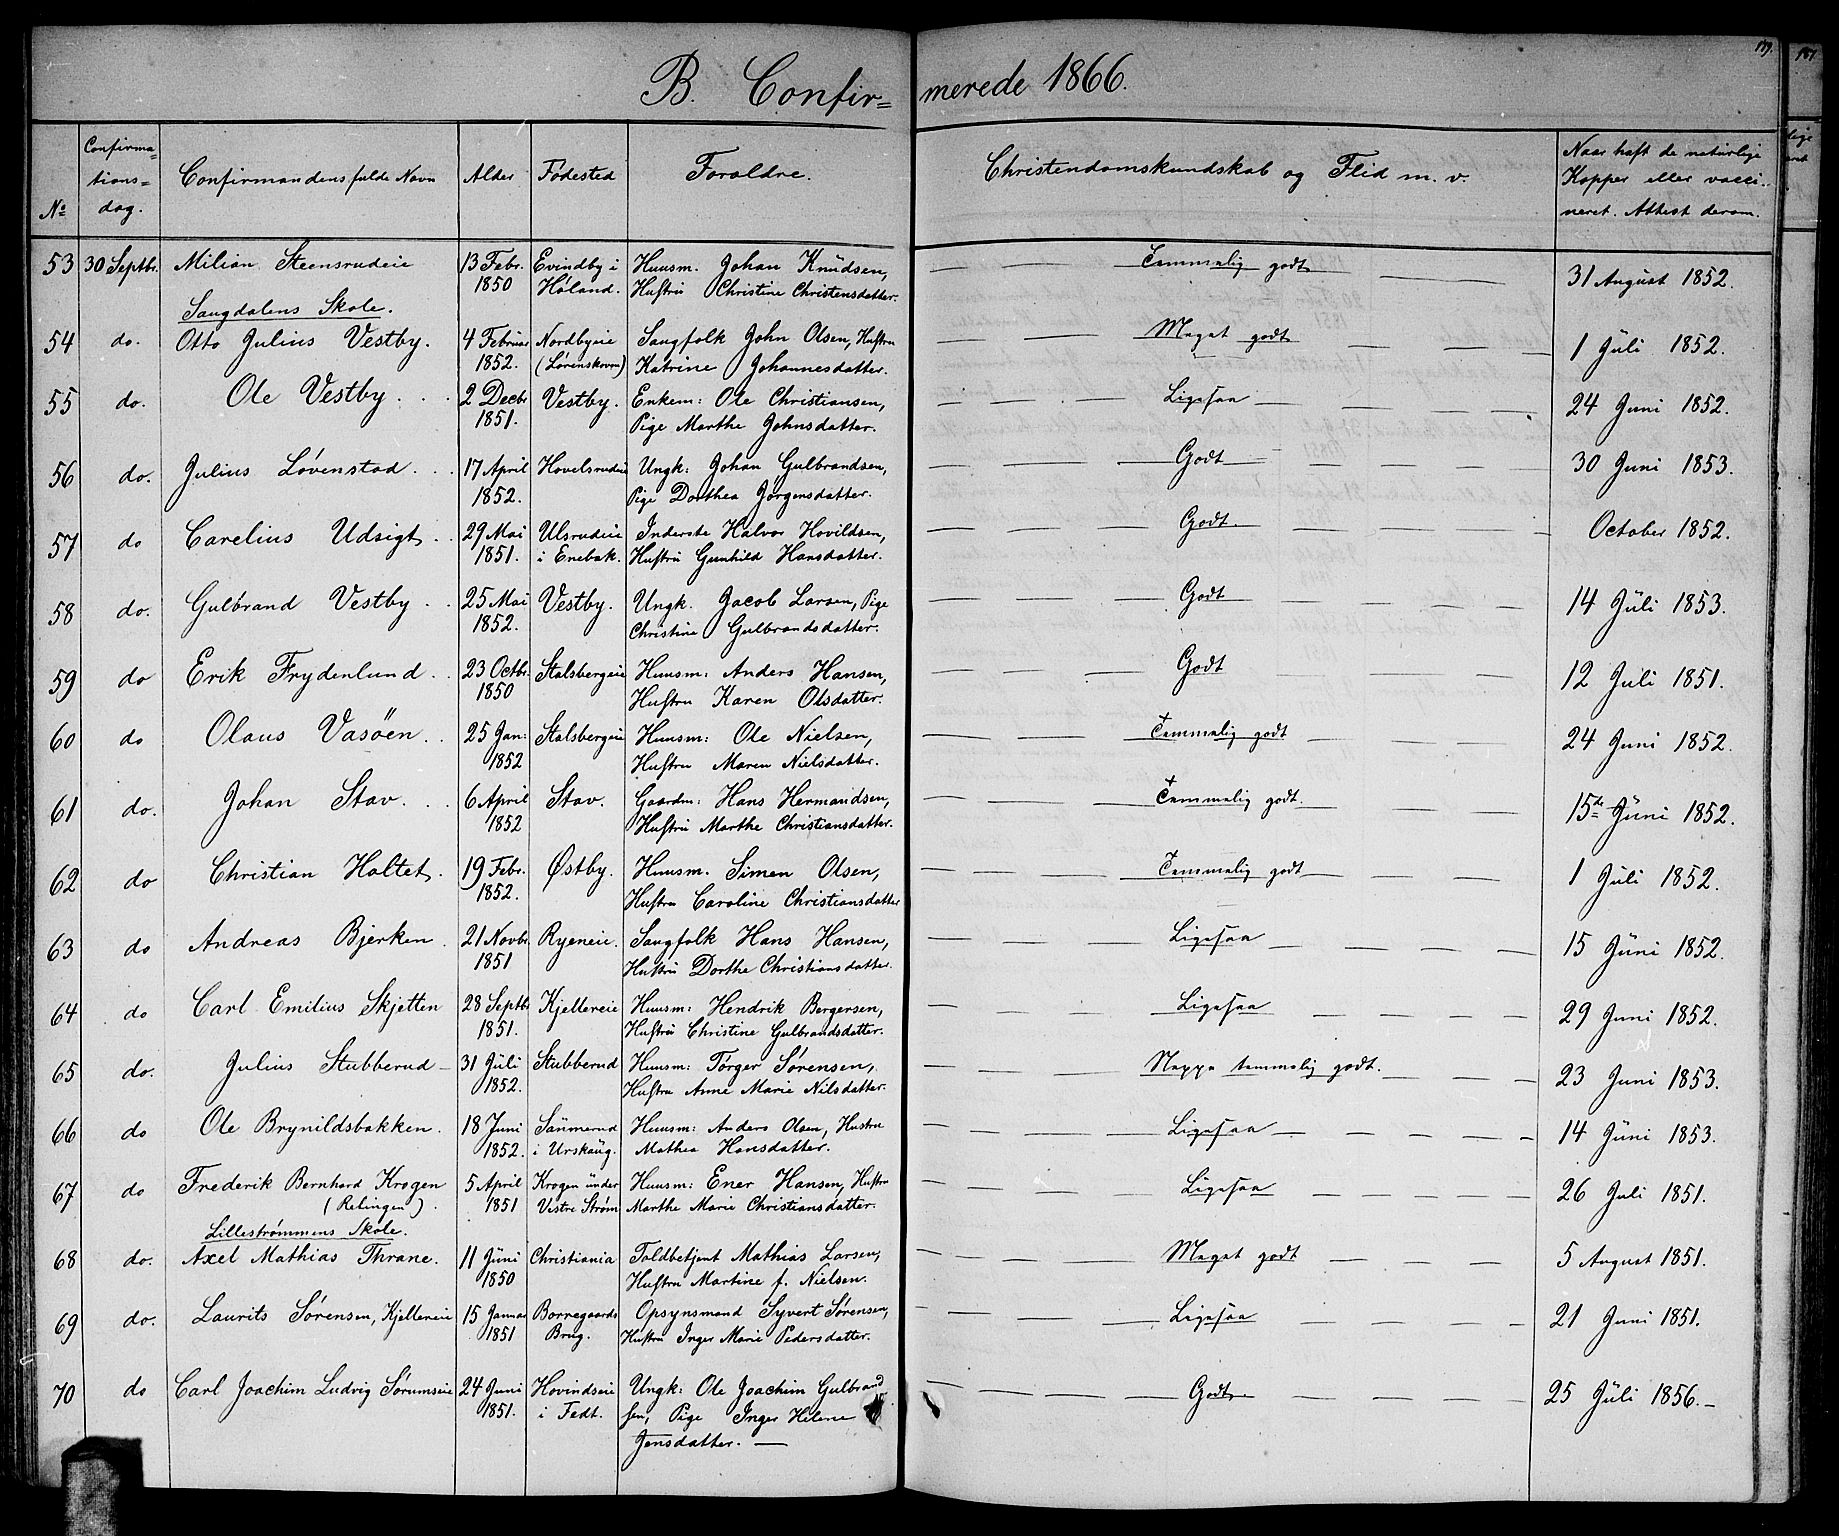 B. Confir= merede 1866.
179.
181
No
Confirma=
tions=
dag.
Confirmandens fulde Navn
Alder
Fødested
Foraldre.
Christendomskundskab og Flid m. v.
Naar haft de naturlige
Kopper eller vacci-
neret. Attest derom.
53 30 Septbr. Milian Steensrudeie 13 Febr. Evindby i Huusm. Johan Knudsen, Temmelig godt 31 August 1852.
1850 Høland. Hustru Christine Christensdatter.
Saugdalens Skole.
54 do. Otto Julius Vestby. 4 Februar Nordbyeie Saugfolk John Olsen, Hustru Meget godt 1 Juli 1852.
1852. (Lørenskoven) Katrine Johannesdatter.
55 do. Ole Vestby. 2 Decbr Vestby. Enkem: Ole Christiansen, Ligesaa 24 Juni 1852.
1851. Pige Marthe Johnsdatter.
56 do. Julius Løvenstad. 17 April Hovelsrudeie Ungk: Johan Gulbrandsen, Godt 30 Juni 1853.
1852. Pige Dorthea Jørgensdatter.
57 do Carelius Udsigt. 29 Mai Ulsrudeie Inderste Halvor Hovildsen, Godt. October 1852.
1851. i Enebak. Hustru Gunhild Hansdatter.
58 do. Gulbrand Vestby. 25 Mai Vestby. Ungk. Jacob Larsen, Pige Godt 14 Juli 1853.
1852. Christine Gulbrandsdatter.
59 do Erik Frydenlund. 23 Octbr. Stalsbergeie Huusm: Anders Hansen, Godt 12 Juli 1851.
1850 Hustru Karen Olsdatter.
60 do Olaus Vasøen. 25 Jan: Stalsbergeie Huusm: Ole Nielsen, Temmelig godt 24 Juni 1852.
1852 Hustru Maren Nielsdatter.
61 do. Johan Stav. 6 April Stav. Gaardm: Hans Hermandsen, Temmelig godt. 15de Juni 1852.
1852 Hustru Marthe Christiansdatter.
62 do Christian Holtet. 19 Febr. Østby. Huusm. Simen Olsen, Temmelig godt 1 Juli 1852.
1852. Hustru Caroline Christiansdatter
63 do Andreas Bjerken. 21 Novbr. Ryeneie. Saugfolk Hans Hansen, Ligesaa 15 Juni 1852.
1851 Hustru Dorthe Christiansdatter.
64 do Carl Emilius Skjetten 28 Septbr. Kjellereie Huusm: Hendrik Bergersen, Ligesaa 29 Juni 1852.
1851. Hustru Christine Gulbrandsdatter.
65 do. Julius Stubberud 31 Juli Stubberud Huusm: Tørger Sørensen, Neppe temmelig godt. 23 Juni 1853.
1852. Hustru Anne Marie Nilsdatter.
66 do Ole Brynildsbakken. 18 Juni Saumerud Huusm: Anders Olsen, Hustru Ligesaa 14 Juni 1853.
1852. i Urskaug. Mathea Hansdatter.
67 do Frederik Bernhard Krogen 5 April Krogen under Huusm: Ener Hansen, Hustru Ligesaa 26 Juli 1851.
(Relingen). 1851 Vestre Strøm Marthe Marie Christiansdatter.
Lillestrømmens Skole.
68 do. Axel Mathias Thrane. 11 Juni Christiania Toldbetjent Mathias Larsen, Meget godt 5 August 1851.
1850 Hustru Martine f. Nielsen.
69 do. Laurits Sørensen, Kjellereie 15 Januar Borregaards Opsynsmand Syvert Sørensen, Ligesaa 21 Juni 1851.
1851 Brug. Hustru Inger Marie Pedersdatter.
70 do Carl Joachim Ludvig Sørumseie 24 Juni Hovindseie Ungk: Ole Joachim Gulbrand Godt 25 Juli 1856.
1851. i Fedt. sen, Pige Inger Helene
Jensdatter.